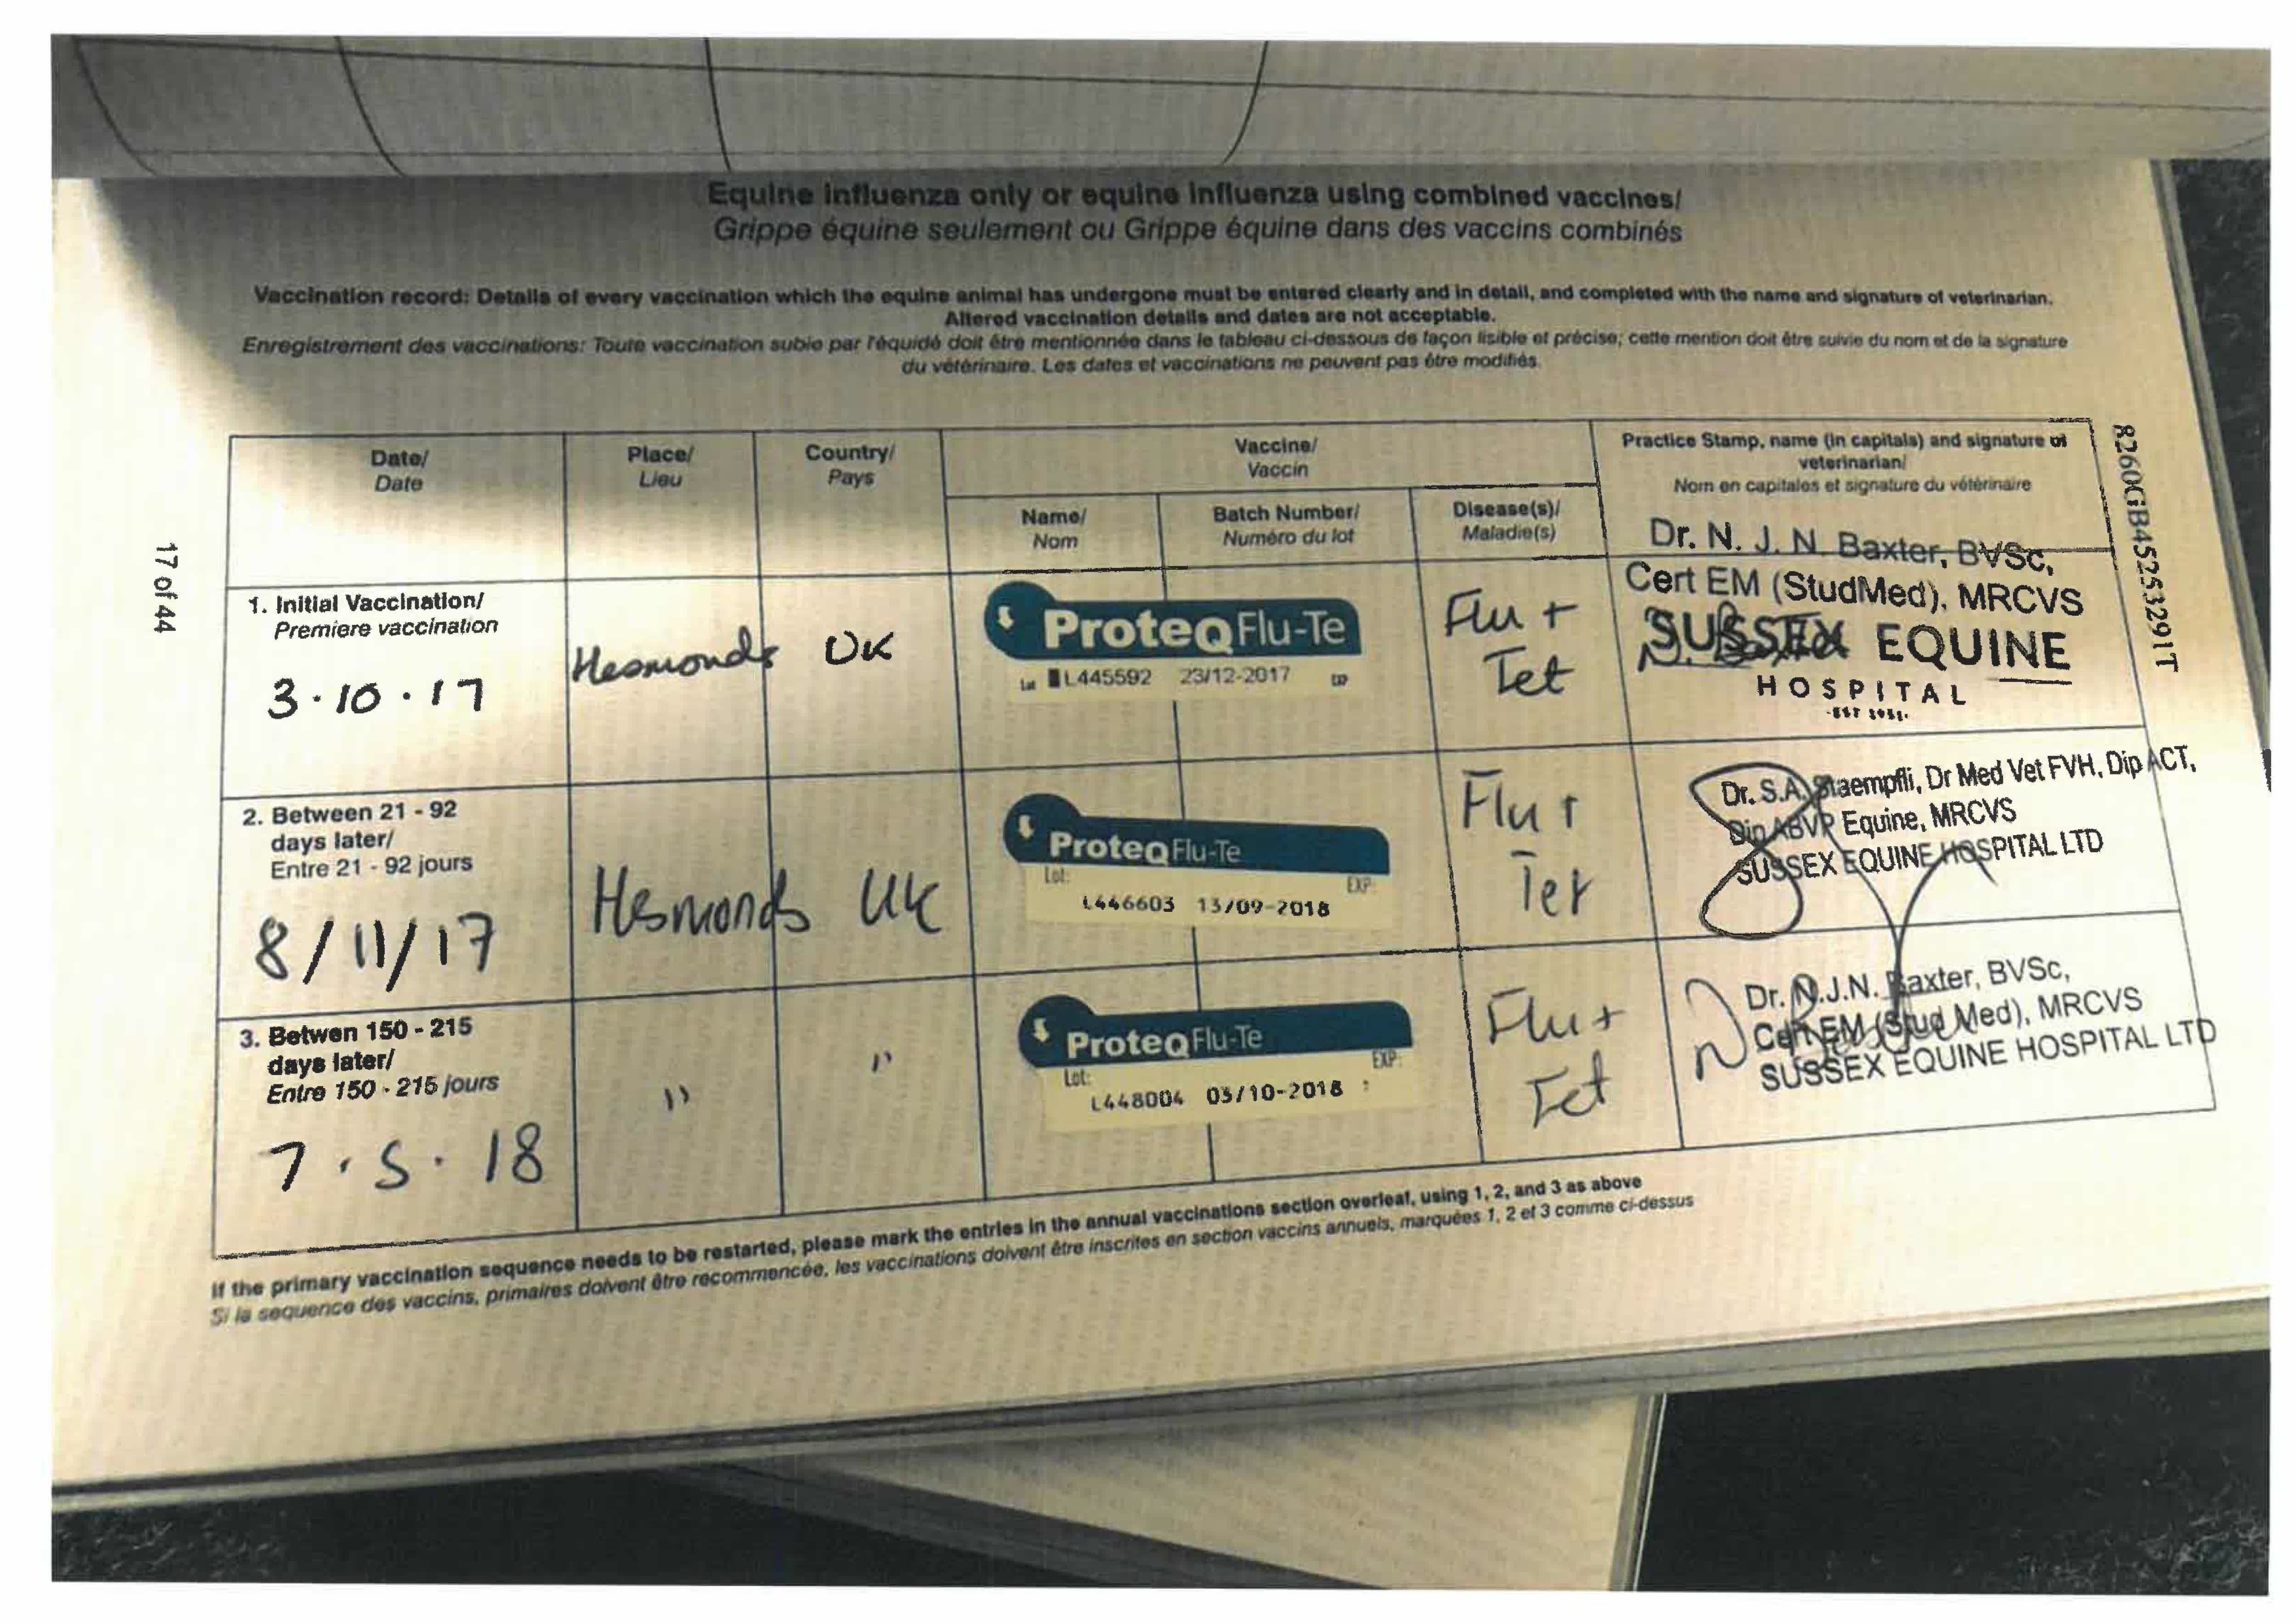 Equine influenza only or equine influenza using combined vaccines/
Grippe équine seulement ou Grippe équine dans des vaccins combinés
Vaccination record: Details of every vaccination which the equine animal has undergone must be entered clearly and in detail, and completed with the name and signature of veterinarian.
Altered vaccination details and dates are not acceptable.
Enregistrement des vaccinations: Toute vaccination subie par l'équidé doit être mentionnée dans le tableau ci-dessous de façon lisible et précise; cette mention doit être suivie du nom et de la signature
du vétérinaire. Les dates et vaccinations ne peuvent pas être modifiés.
Date/
Date
Place/
Lieu
Country/
Pays
Vaccine/
Vaccin
Name/
Nom
Batch Number/
Numéro du lot
Disease(s)/
Maladie(s)
Practice Stamp, name (in capitals) and signature of
veterinarian/
Nom en capitales et signature du vétérinaire
1. Initial Vaccination/
Premiere vaccination
3.10.17
Hesmonds
UK
ProteqFlu-Te
Lot L445592 23/12-2017 EXP
Flu +
Tet
Dr. N. J. N. Baxter, BVSc,
Cert EM (StudMed), MRCVS
SUSSEX EQUINE
HOSPITAL
EST 1951
2. Between 21 - 92
days later/
Entre 21 - 92 jours
8/11/17
Hesmonds
UK
ProteqFlu-Te
Lot: EXP:
L446603 13/09-2018
Flu +
Tet
Dr. S.A. Staempfli, Dr Med Vet FVH, Dip ACT,
Dip ABVP Equine, MRCVS
SUSSEX EQUINE HOSPITAL LTD
3. Betwen 150 - 215
days later/
Entre 150 - 215 jours
7.5.18
"
"
ProteqFlu-Te
Lot: EXP:
L448004 03/10-2018
Flu +
Tet
Dr. N.J.N. Baxter, BVSc,
Cert EM (Stud Med), MRCVS
SUSSEX EQUINE HOSPITAL LTD
If the primary vaccination sequence needs to be restarted, please mark the entries in the annual vaccinations section overleaf, using 1, 2, and 3 as above
Si la sequence des vaccins, primaires doivent être recommencée, les vaccinations doivent être inscrites en section vaccins annuels, marquées 1, 2 et 3 comme ci-dessus
17 of 44
8260GB45253291T